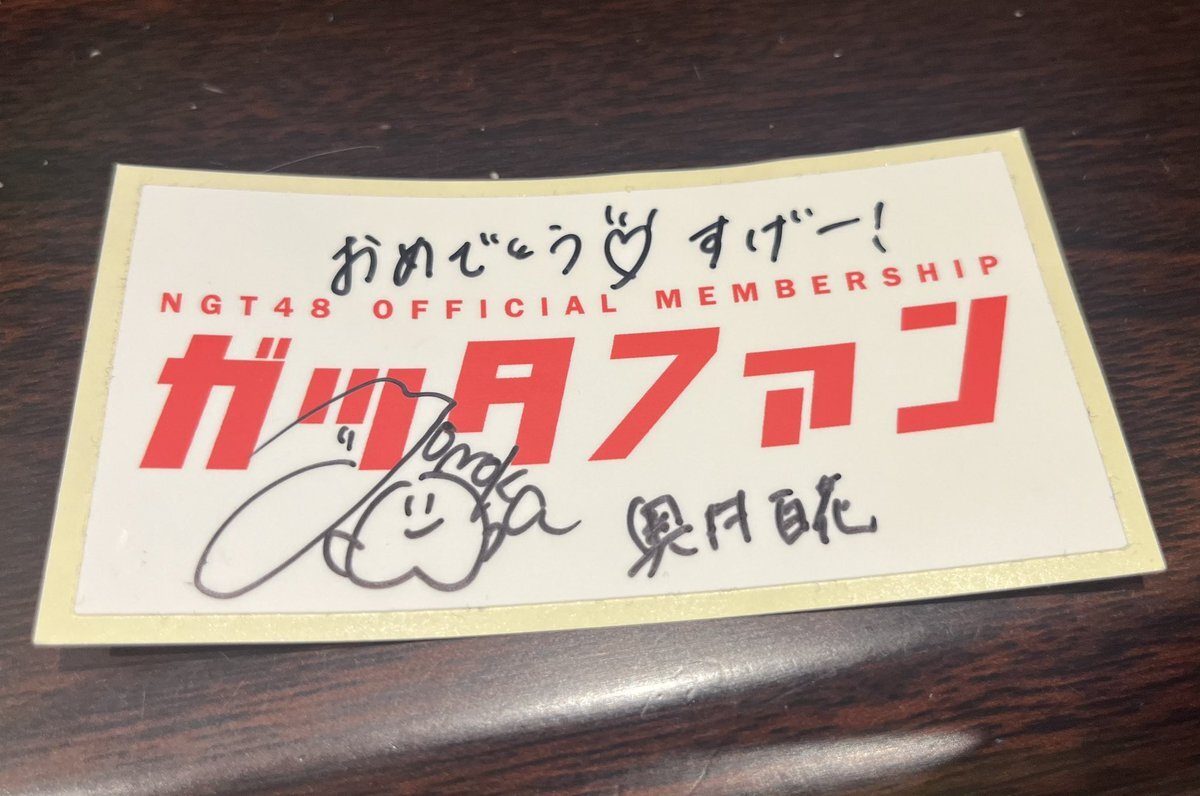 おめでとう♡すげー!
NGT48 OFFICIAL MEMBERSHIP
ガッタファン
Momoka
奥月百花